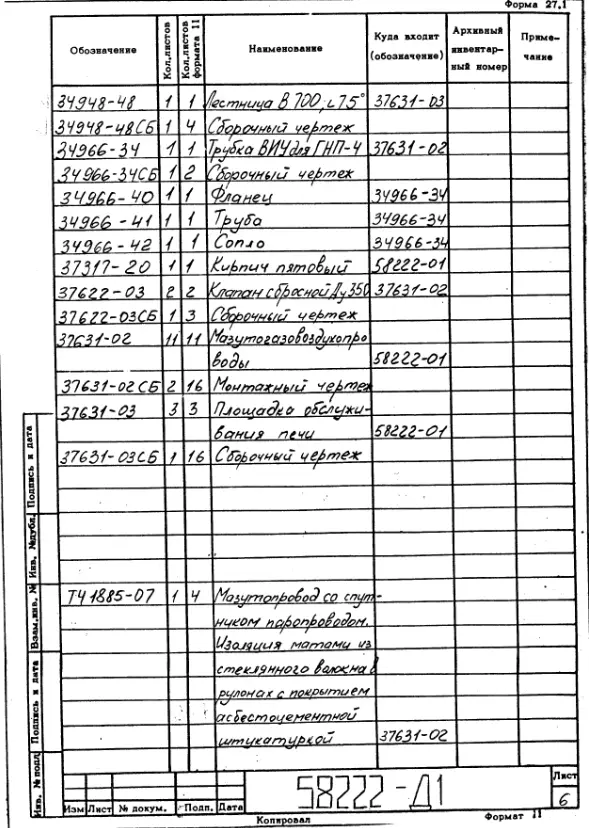 Форма 27.1
Обозначение Кол.листов Кол.листов формата 11 Наименование Куда входит (обозначение) Архивный инвентарный номер Примечание
34948-48 1 1 Лестница В 700, L75° 37631-03
34948-48СБ 1 4 Сборочный чертеж
34966-34 1 1 Трубка ВИУ для ГНП-4 37631-02
34966-34СБ 1 2 Сборочный чертеж
34966-40 1 1 Фланец 34966-34
34966-41 1 1 Труба 34966-34
34966-42 1 1 Сопло 34966-34
37317-20 1 1 Кирпич пятовый 58222-01
37622-03 2 2 Клапан сбросной Ду350 37631-02
37622-03СБ 1 3 Сборочный чертеж
37631-02 11 11 Мазутогазовоздухопро
воды 58222-01
37631-02СБ 2 16 Монтажный чертеж
37631-03 3 3 Площадка обслужи-
вания печи 58222-01
37631-03СБ 1 16 Сборочный чертеж
ТЧ1885-07 1 4 Мазутопровод со спут-
ником паропроводом.
Изоляция матами из
стеклянного волокна в
рулонах с покрытием
асбестоцементной
штукатуркой 37631-02
Инв. №подл. Подпись и дата Взам.инв. № Инв. №дубл. Подпись и дата
58222-Д1
Лист
6
Изм Лист № докум. Подп. Дата
Копировал Формат 11